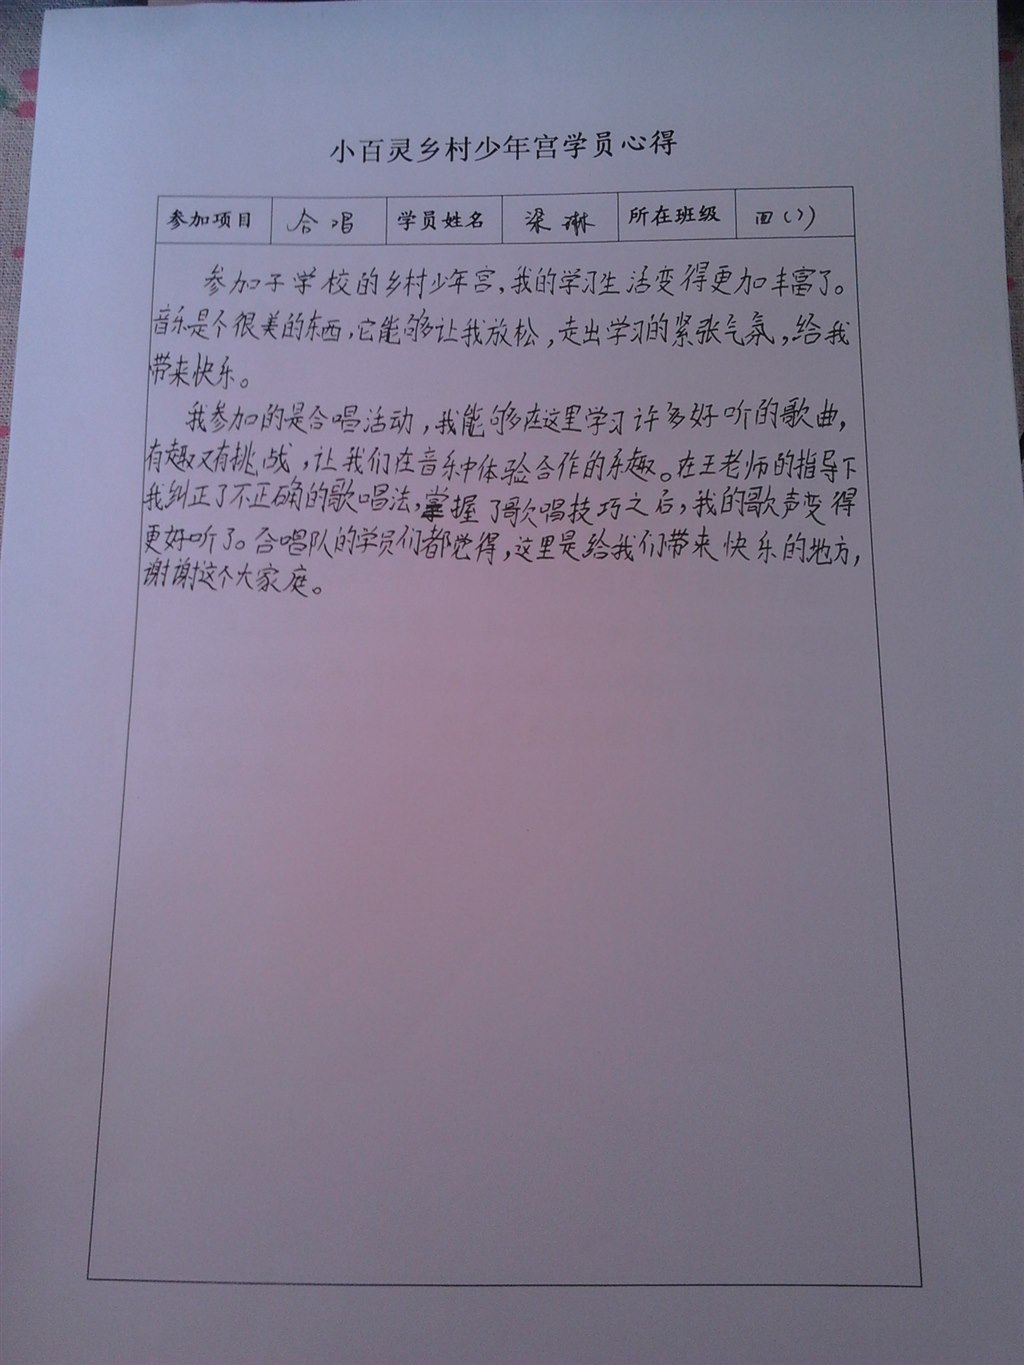 小百灵乡村少年宫学员心得
参加项目 合唱 学员姓名 梁琳 所在班级
参加了学校的乡村少年宫，我的学习生活变得更加丰富了。
音乐是个很美的东西，它能够让我放松，走出学习的紧张气氛，给我
带来快乐。
我参加的是合唱活动，我能够在这里学习许多好听的歌曲，
有趣又有挑战，让我们在音乐中体验合作的乐趣。在王老师的指导下
我纠正了不正确的歌唱法，掌握了歌唱技巧之后，我的歌声变得
更好听了。合唱队的学员们都觉得，这里是给我们带来快乐的地方，
谢谢这个大家庭。